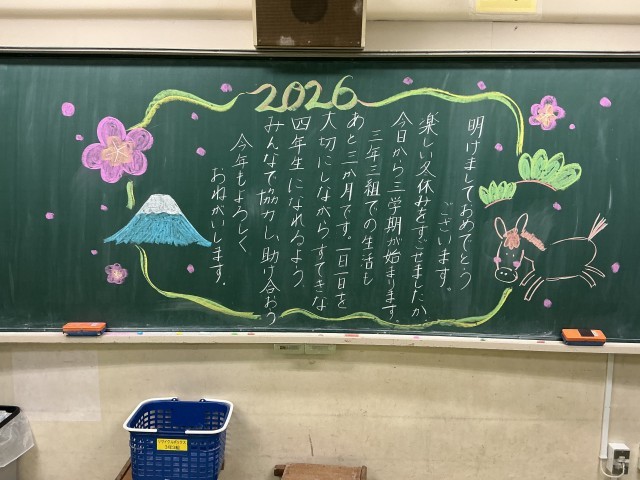 2026
明けましておめでとう
ございます。
楽しい冬休みをすごせましたか
今日から三学期が始まります。
三年三組での生活も
あと三か月です。一日一日を
大切にしながら、すてきな
四年生になれるよう、
みんなで協力し、助け合おう
今年もよろしく
おねがいします。
リサイクルボックス
3年3組